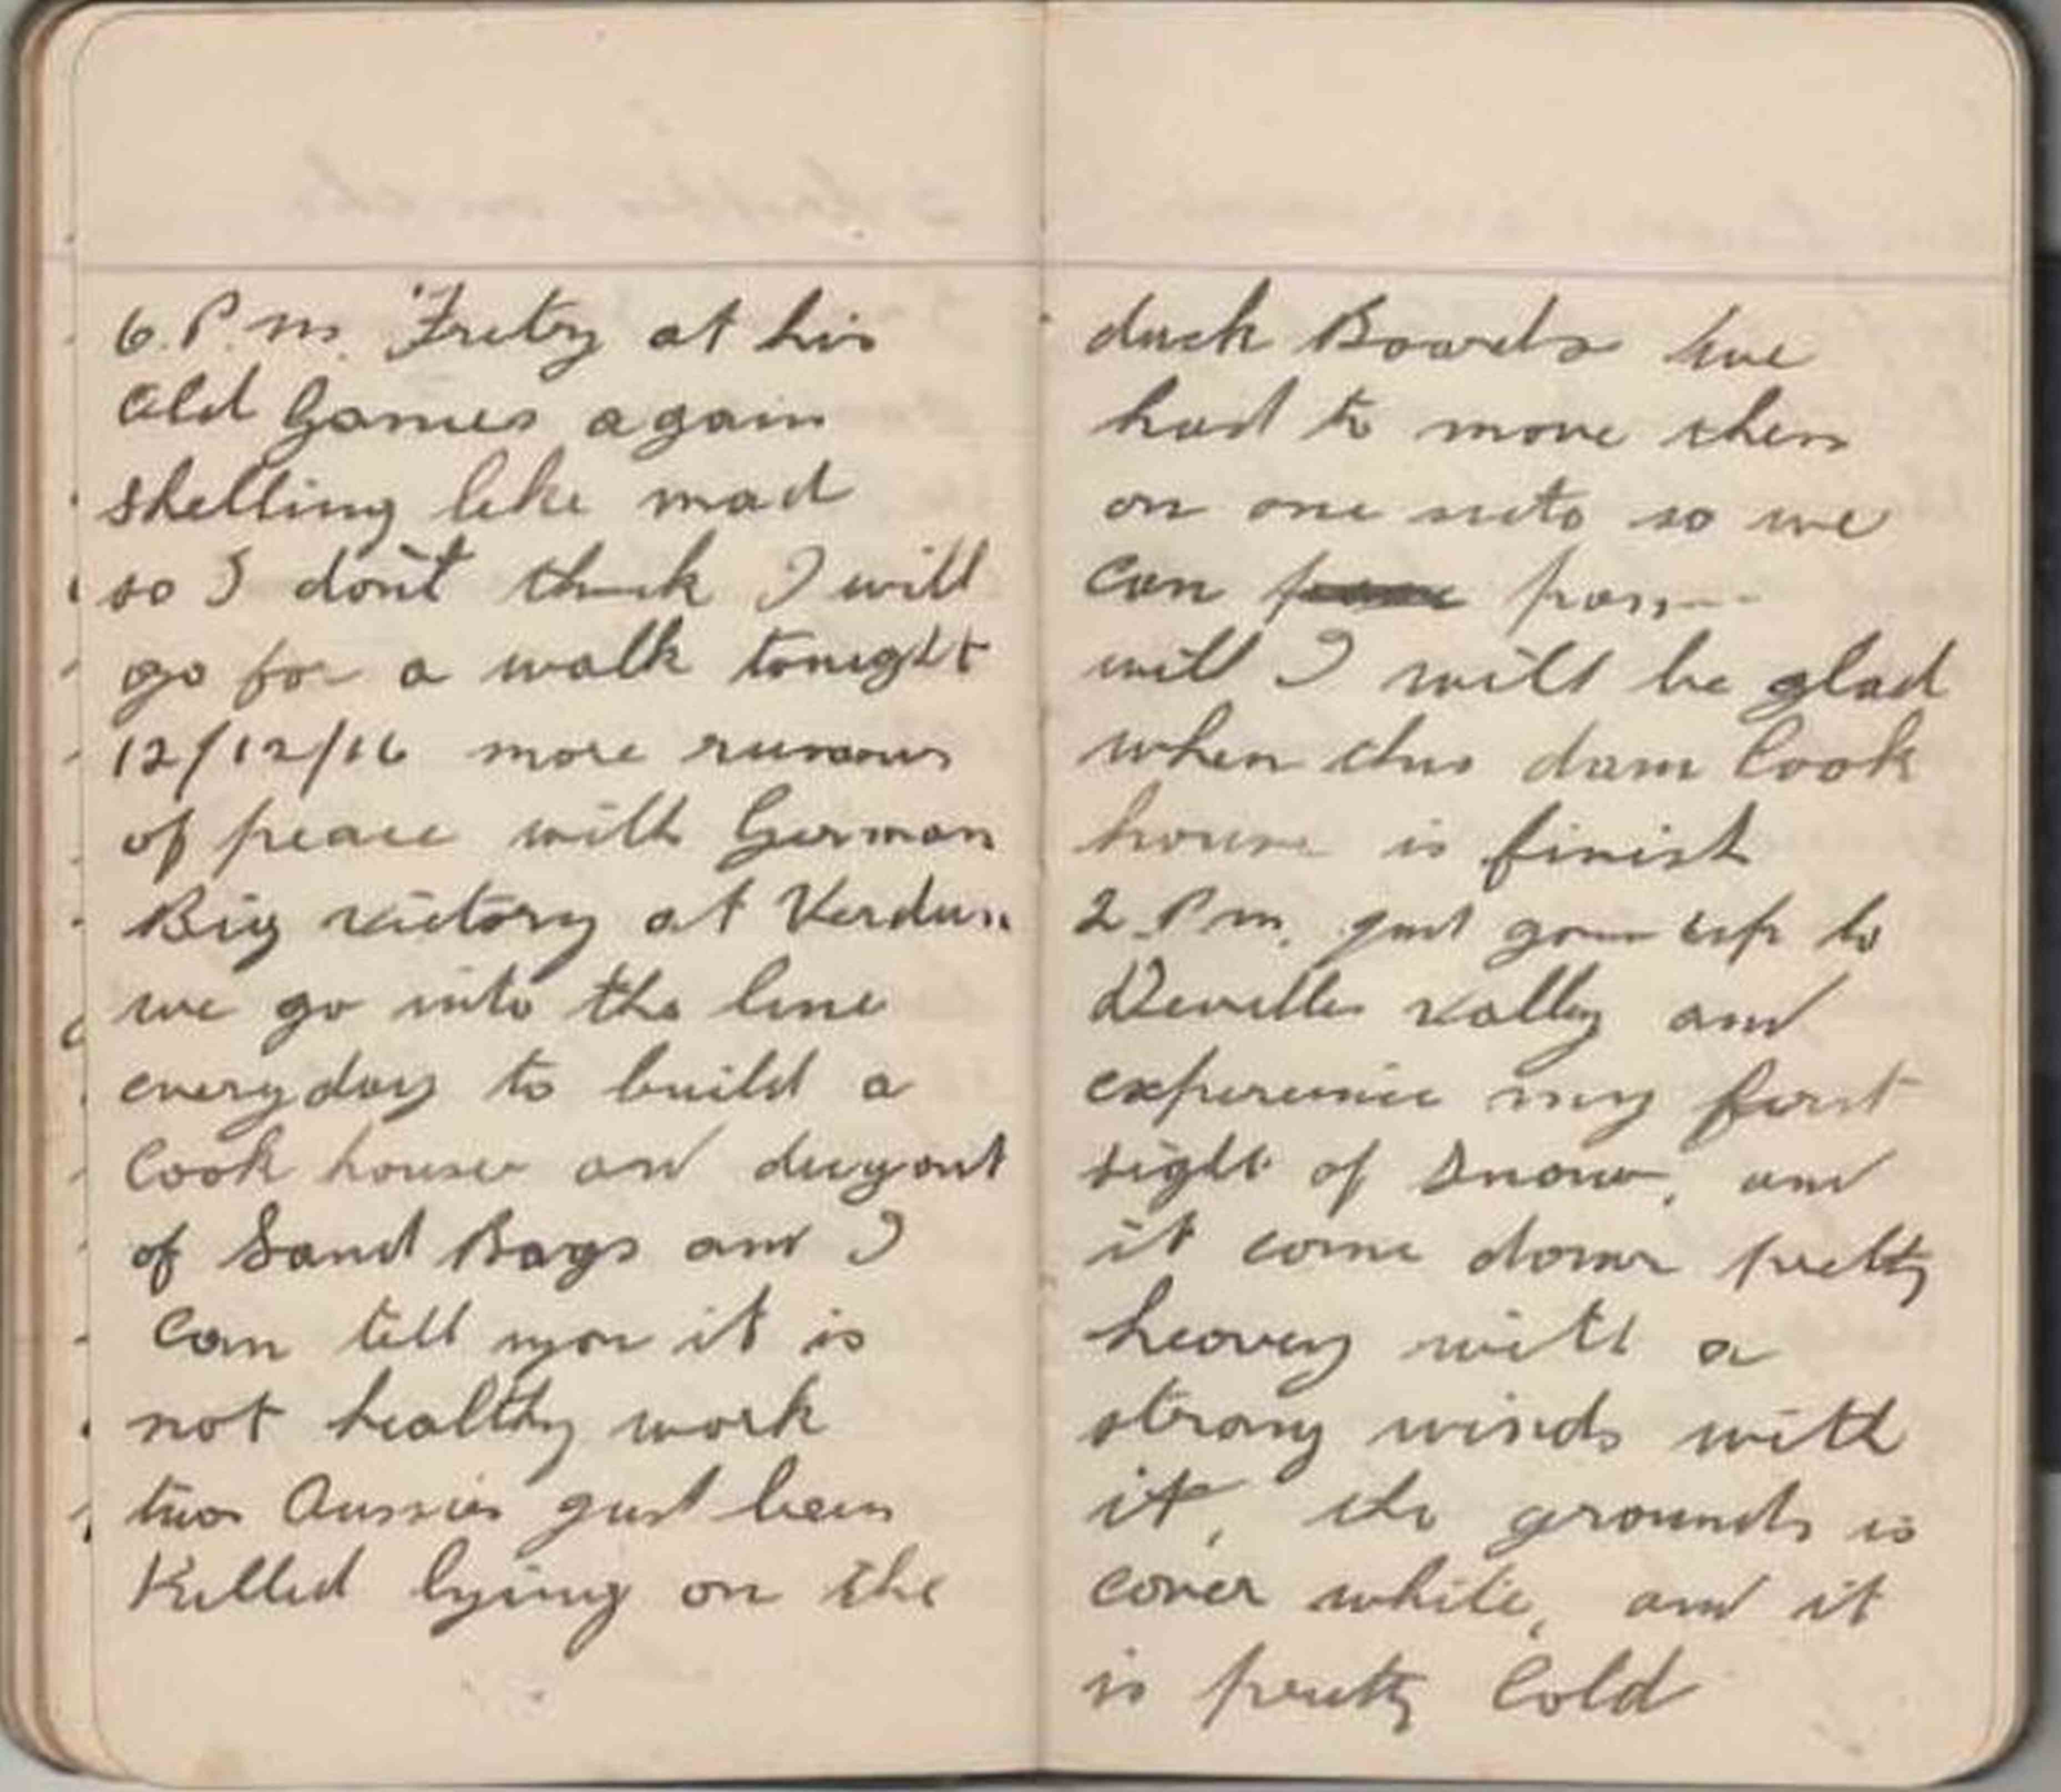 6 P.m. Fritzy at his
old Games again
shelling like mad
so I don't think I will
go for a walk tonight
12/12/16 more rumours
of peace with German
Big victory at Verdun
we go into the line
everyday to build a
Cook house and dugout
of Sand Bags and I
can tell you it is
not healthy work
two Aussies just been
Killed lying on the
duck Boards we
had to move them
on one side so we
can pass
will I will be glad
when this dam Cook
house is finish
2 P.m. just gone up to
Deville valley and
experience my first
sight of Snow, and
it come down pretty
heavey with a
strong winds with
it, the grounds is
cover white, and it
is pretty Cold